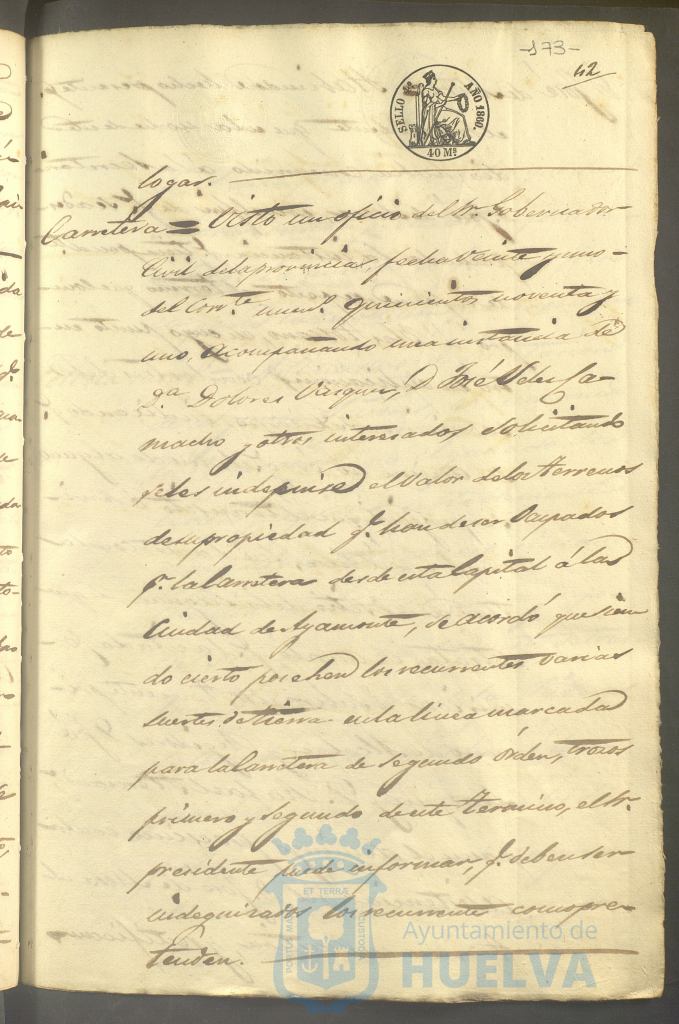 -173-
42
SELLO 4º AÑO 1860.
40 Ms
logar.
Carretera = Visto un oficio del Sr. Gobernador
Civil de la provincia, fecha veinte y uno
del Corte. num. quinientos noventa y
uno, acompañando una instancia de
Da Dolores Vasquez, D. José Velez Ca-
macho y otros interesados solicitando
se les indegnise el valor de los terrenos
de su propiedad q. han de ser ocupados
p. la Carretera desde esta Capital á la
Ciudad de Ayamonte, se acordó que sien
do cierto posehen los recurrentes varias
suertes de tierra en la linea marcada
para la Carretera de segundo órden, trozos
primero y segundo de este termino, el Sr.
presidente puede informar, q. deben ser
indegnisados los recurrentes como pre-
tenden.
ET TERRÆ
PORTUS MARIS
CUSTODIA
Ayuntamiento de
HUELVA